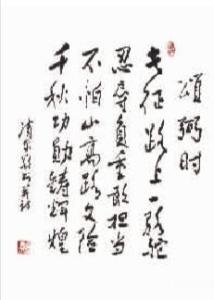 颂弼时
长征路上一骆驼
忍辱负重敢担当
不怕山高路又险
千秋功勋铸辉煌